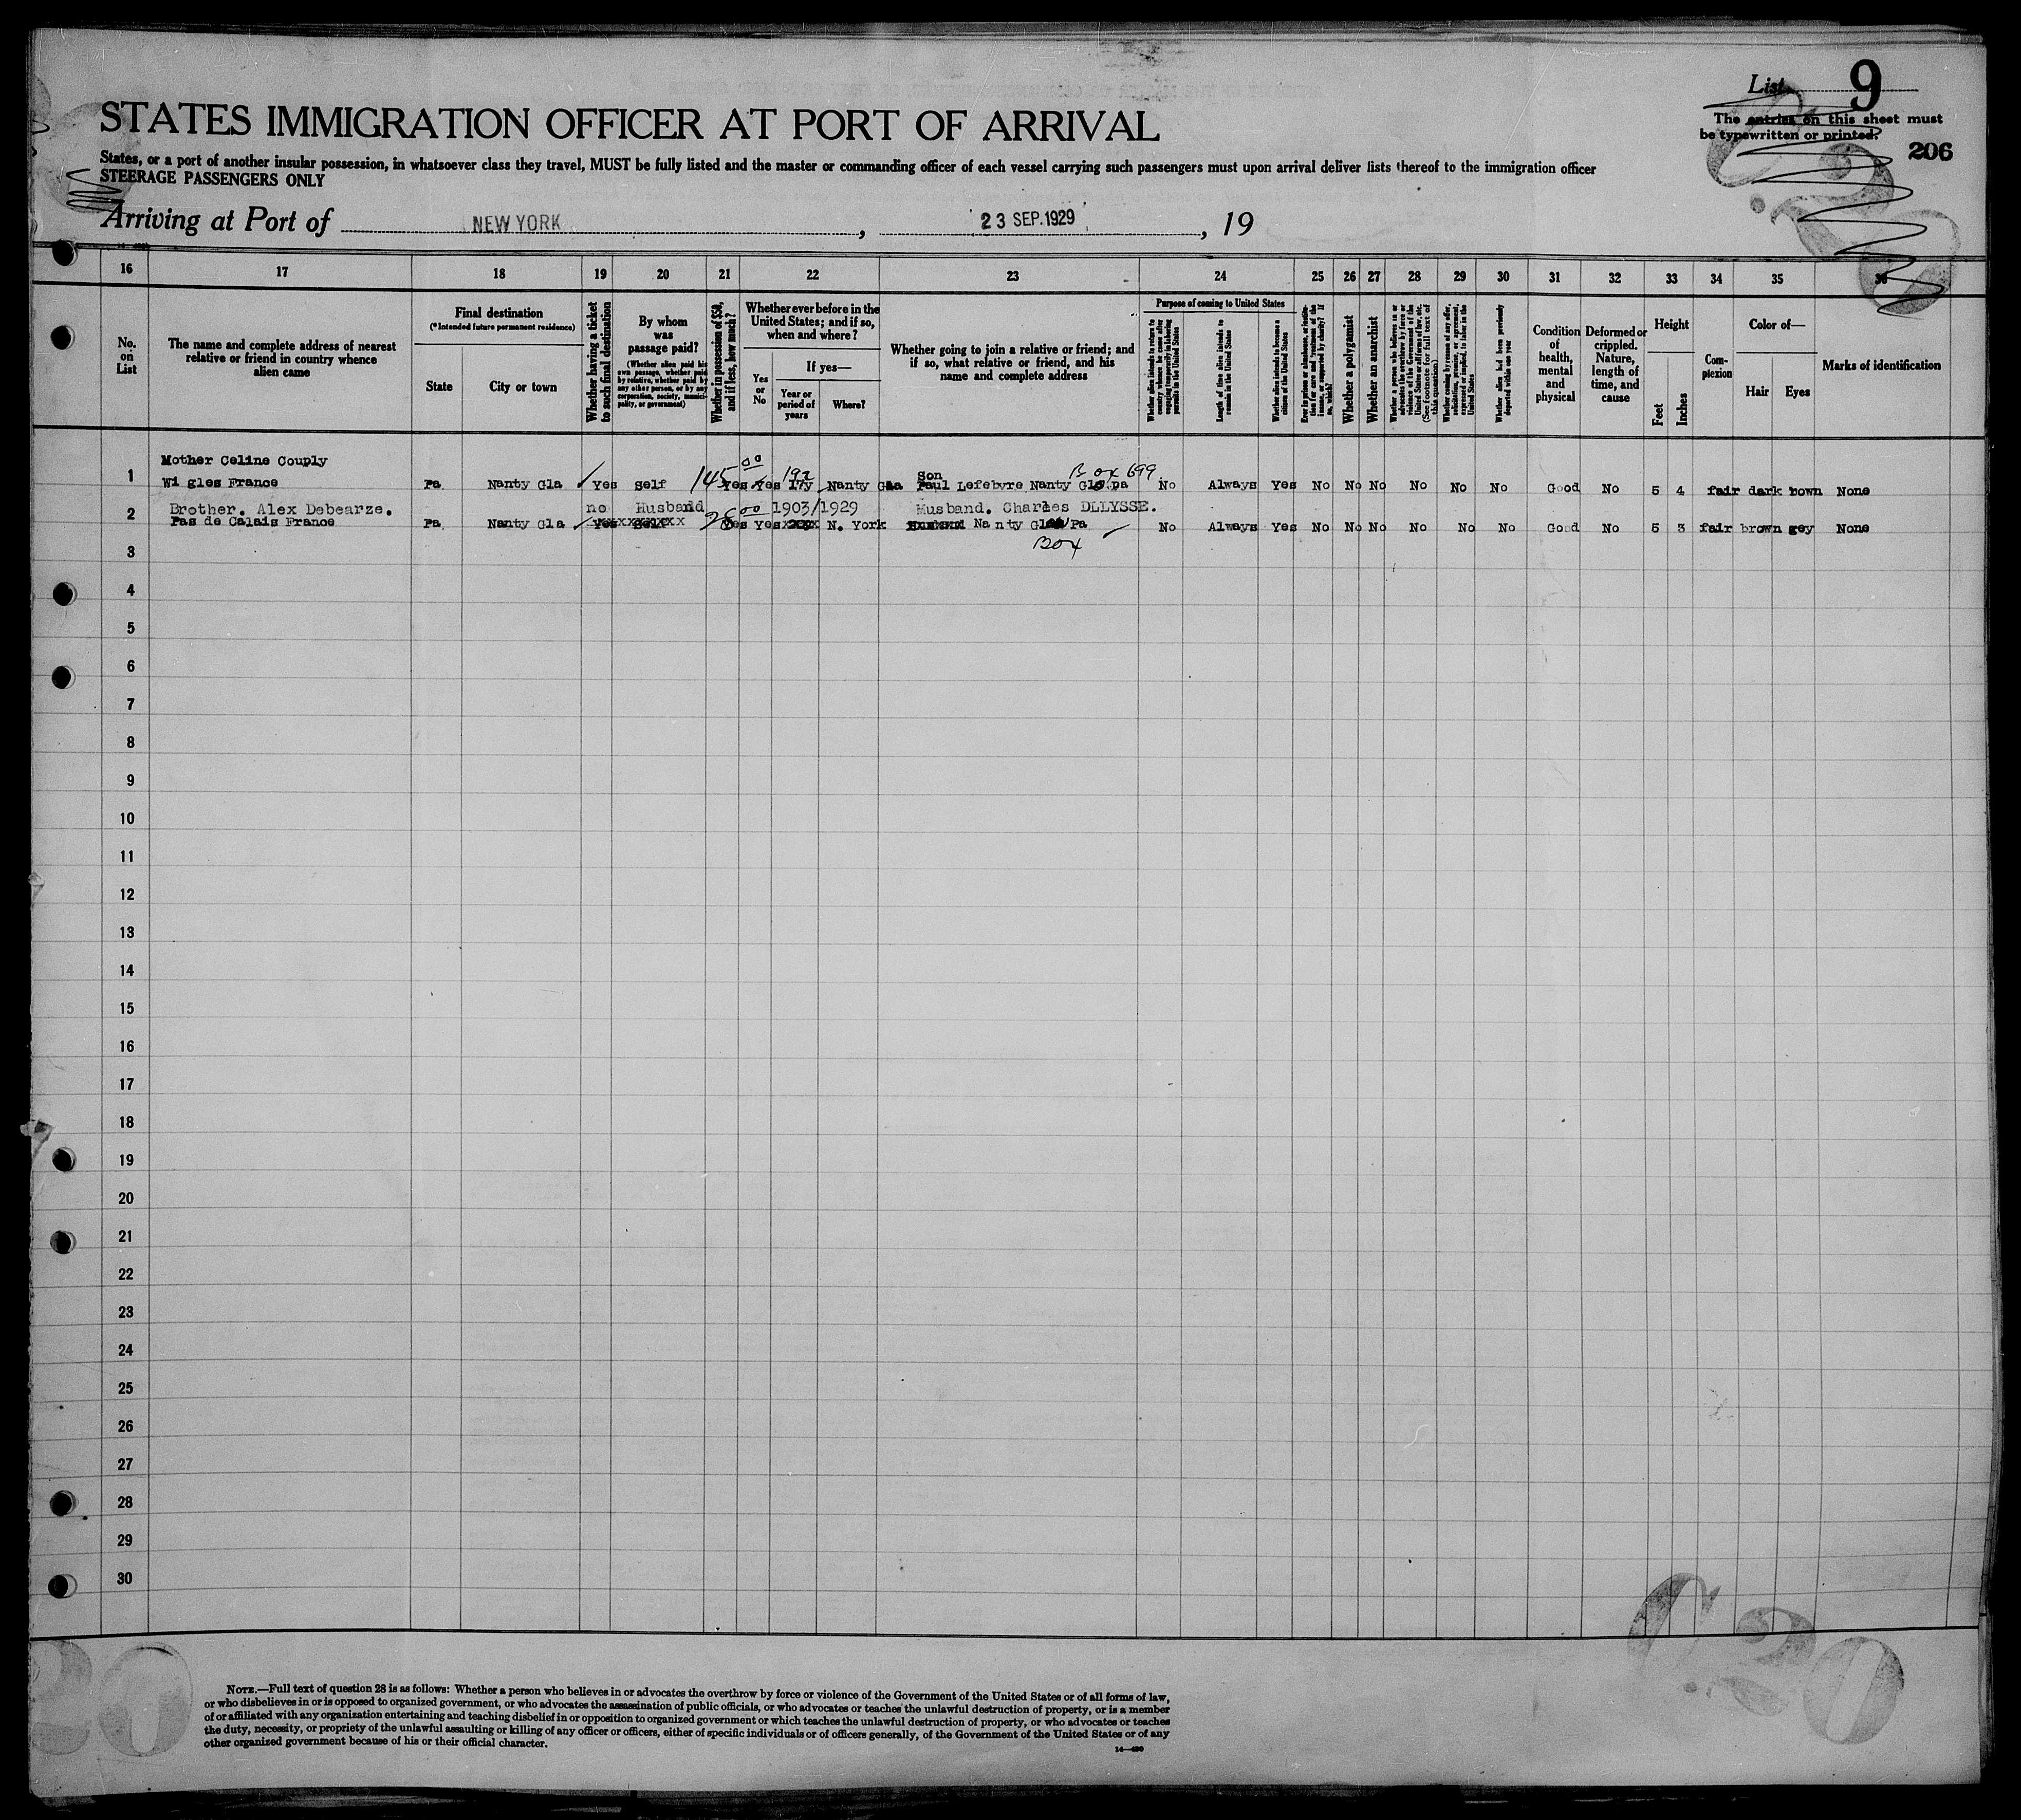 List 9
STATES IMMIGRATION OFFICER AT PORT OF ARRIVAL
The entries on this sheet must
be typewritten or printed.
206
States, or a port of another insular possession, in whatsoever class they travel, MUST be fully listed and the master or commanding officer of each vessel carrying such passengers must upon arrival deliver lists thereof to the immigration officer
STEERAGE PASSENGERS ONLY
Arriving at Port of NEW YORK, 23 SEP. 1929, 19
16 17 18 19 20 21 22 23 24 25 26 27 28 29 30 31 32 33 34 35 36
No. on List
The name and complete address of nearest relative or friend in country whence alien came
Final destination
(*Intended future permanent residence)
State
City or town
Whether having a ticket to such final destination
By whom was passage paid?
(Whether alien paid his own passage, whether paid by relative, whether paid by any other person, or by any corporation, society, municipality, or government)
Whether in possession of $50, and if less, how much?
Whether ever before in the United States; and if so, when and where?
Yes or No
If yes—
Year or period of years
Where?
Whether going to join a relative or friend; and if so, what relative or friend, and his name and complete address
Purpose of coming to United States
Whether alien intends to return to country whence he came after engaging temporarily in laboring pursuits in the United States
Length of time alien intends to remain in the United States
Whether alien intends to become a citizen of the United States
Ever in prison or almshouse, or institution for care and treatment of the insane, or supported by charity? If so, which?
Whether a polygamist
Whether an anarchist
Whether a person who believes in or advocates the overthrow by force or violence of the Government of the United States or all forms of law, etc. (See footnote for full text of this question)
Whether coming by reason of any offer, solicitation, promise, or agreement, expressed or implied, to labor in the United States
Whether alien had been previously deported within one year
Condition of health, mental and physical
Deformed or crippled. Nature, length of time, and cause
Height
Feet
Inches
Complexion
Color of—
Hair
Eyes
Marks of identification
Mother Celine Couply 00 192 Son Box 699
1 Wi gles France Pa Nanty Gla Yes Self 145 Yes Yes Nanty Gla Paul Lefebvre Nanty Glo pa No Always Yes No No No No No No Good No 5 4 fair dark bown None
Brother. Alex Debearze. no Husband 00 1903/1929 Husband. Charles DLLYSSE.
2 Pas de Calais France Pa. Nanty Gla Yes Yes Yes xxxx N. York Husband Nanty Pa No Always Yes No No No No No No Good No 5 3 fair brown gey None
Box
3
4
5
6
7
8
9
10
11
12
13
14
15
16
17
18
19
20
21
22
23
24
25
26
27
28
29
30
NOTE.—Full text of question 28 is as follows: Whether a person who believes in or advocates the overthrow by force or violence of the Government of the United States or of all forms of law,
or who disbelieves in or is opposed to organized government, or who advocates the assassination of public officials, or who advocates or teaches the unlawful destruction of property, or is a member
of or affiliated with any organization entertaining and teaching disbelief in or opposition to organized government or which teaches the unlawful destruction of property, or who advocates or teaches
the duty, necessity, or propriety of the unlawful assaulting or killing of any officer or officers, either of specific individuals or of officers generally, of the Government of the United States or of any
other organized government because of his or their official character.
14—430